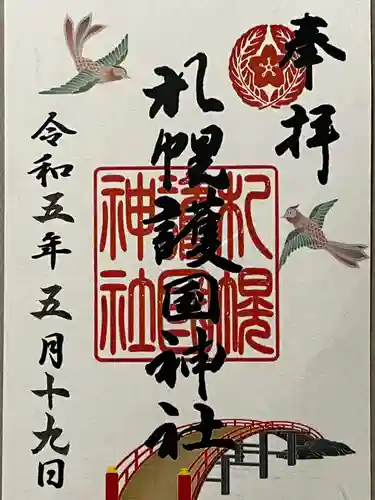 奉拝
札幌護国神社
札幌護国神社
令和五年五月十九日